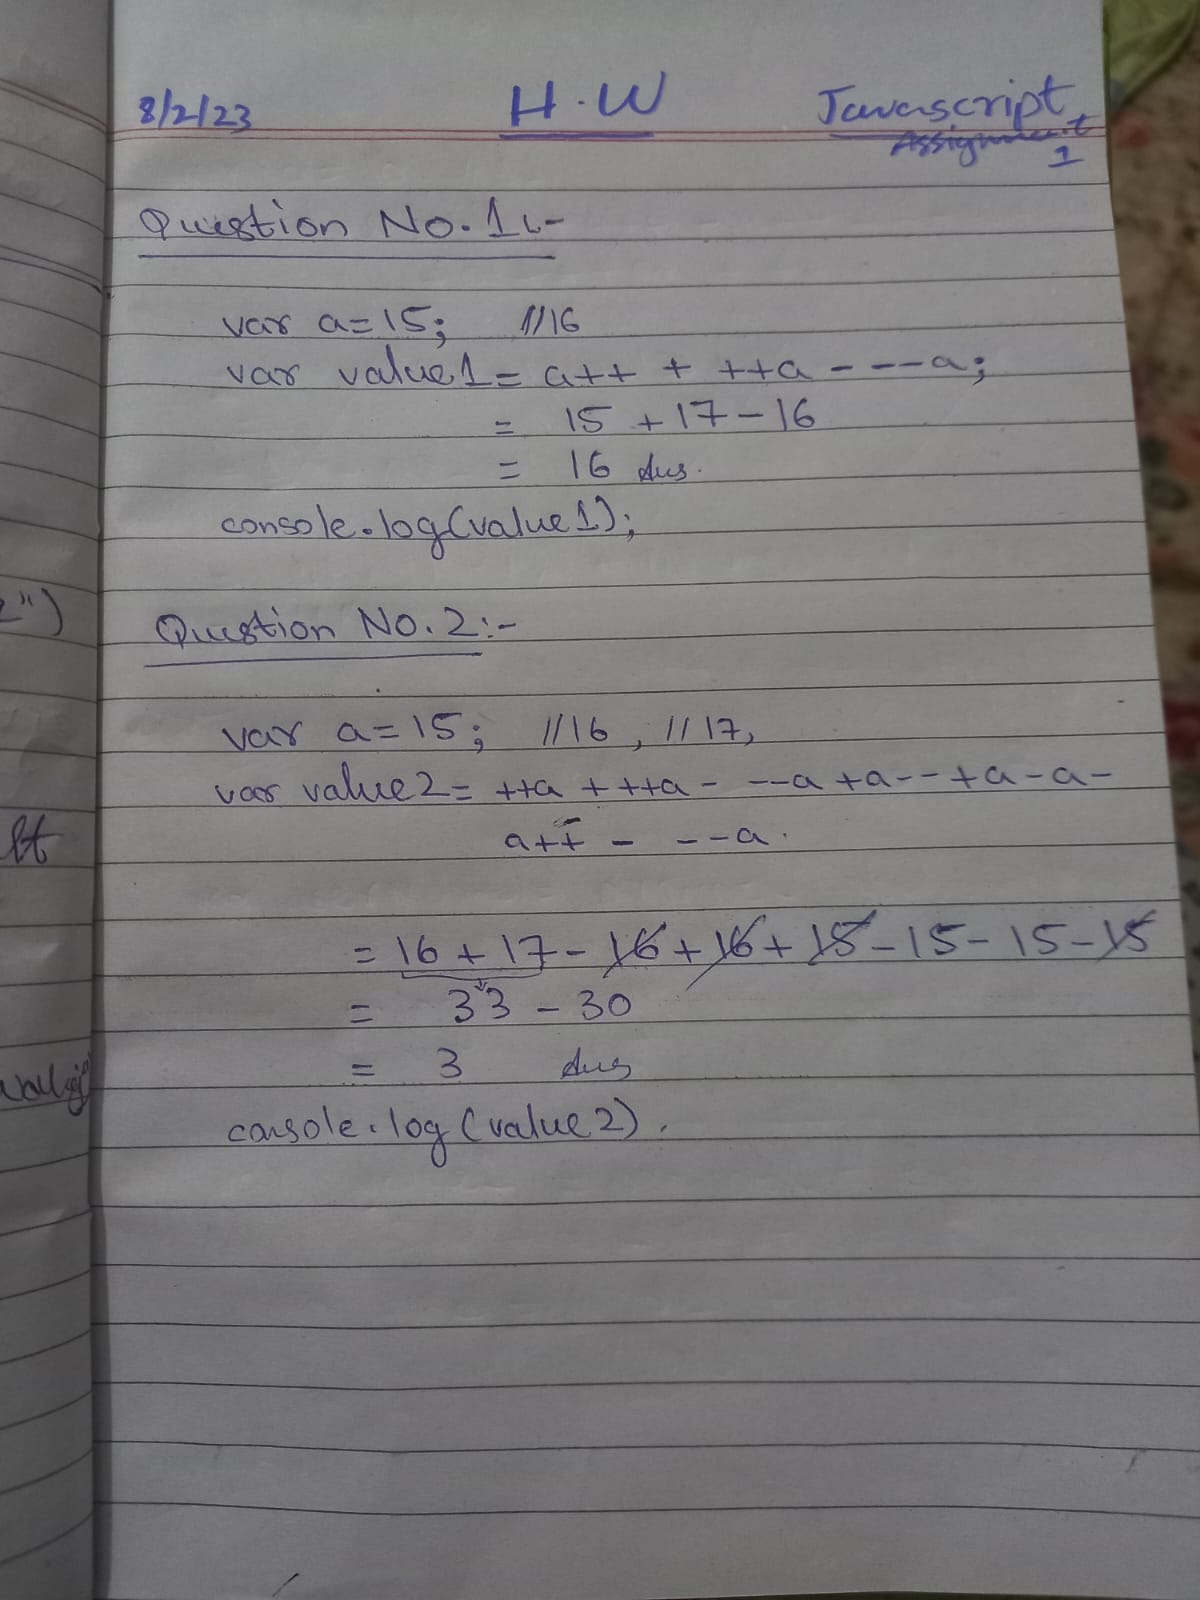 8/2/23 H.W Javascript
Assignment
1
Question No. 1:-
var a=15; //16
var value1= a++ + ++a - --a;
= 15 +17-16
= 16 Ans.
console.log(value1);
2")
Question No. 2:-
var a=15; //16 , //17,
var value2= ++a + ++a - --a +a-- +a-a-
a++ - --a.
= 16 + 17 - 16 + 16 + 15 - 15 - 15 - 15
= 33 - 30
= 3 Ans
console.log(value2).